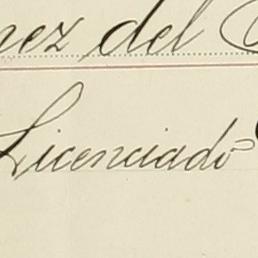 nez del
Licenciado